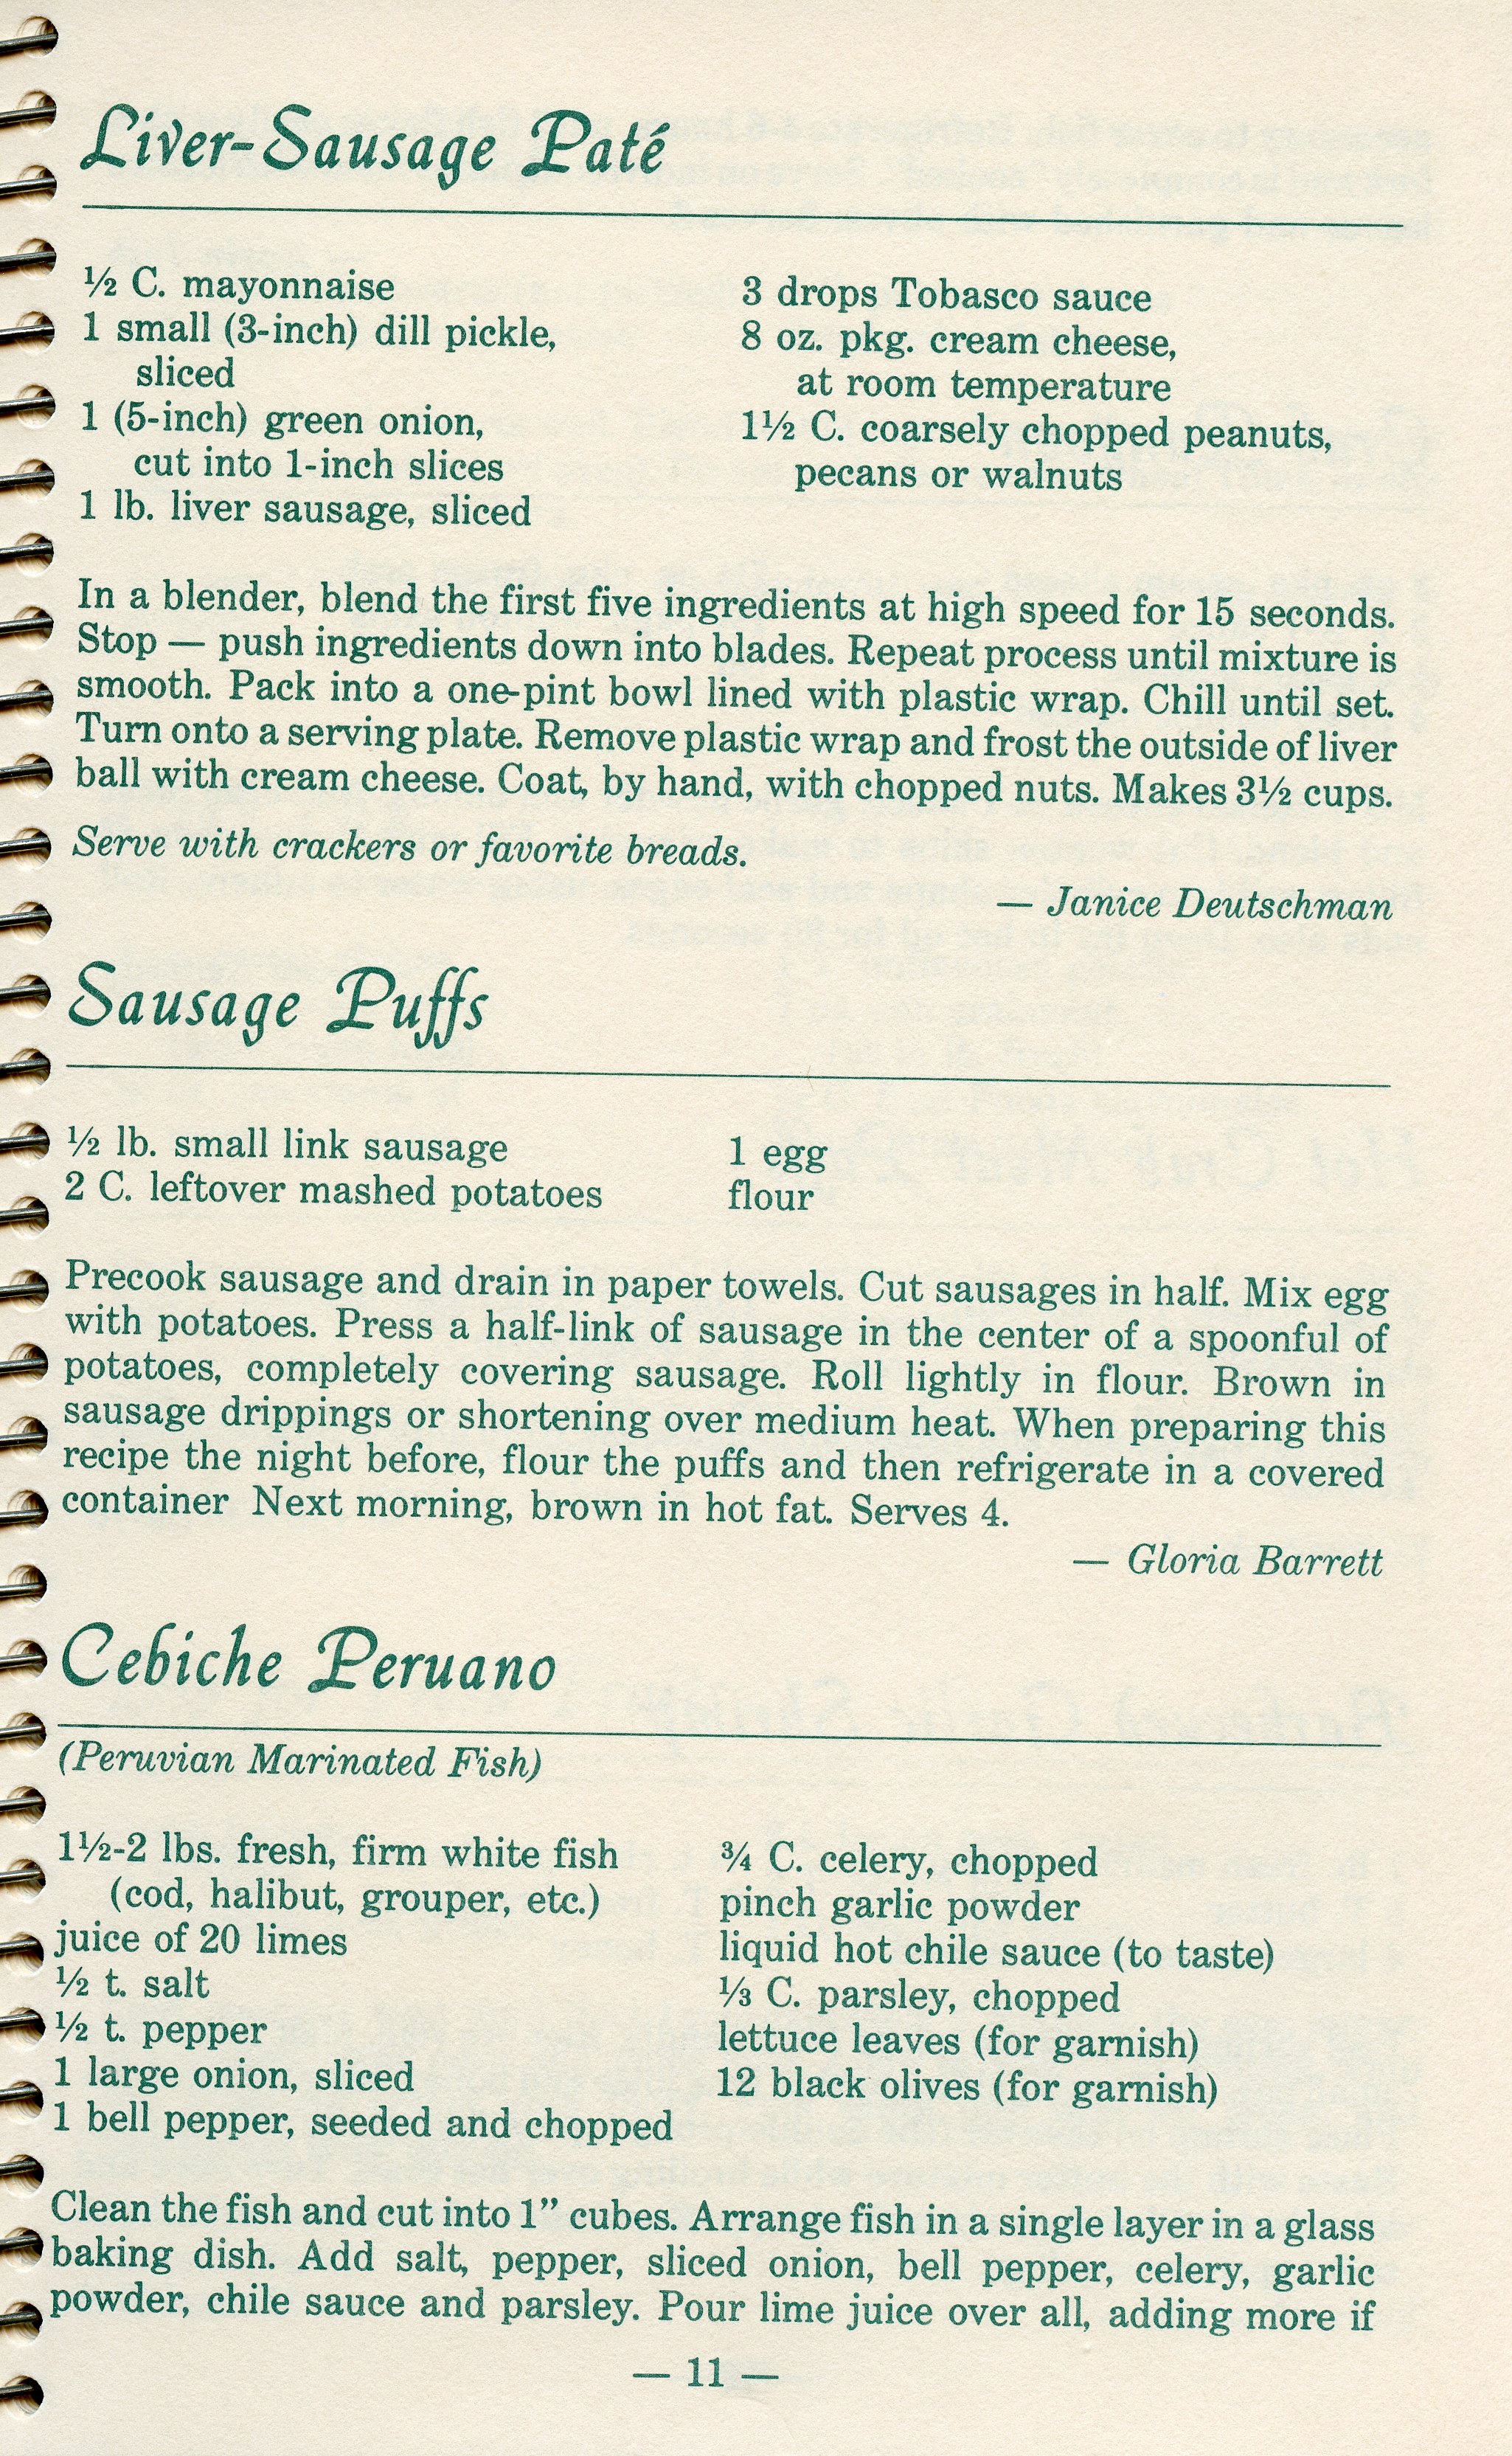 Liver-Sausage Paté
½ C. mayonnaise
1 small (3-inch) dill pickle,
sliced
1 (5-inch) green onion,
cut into 1-inch slices
1 lb. liver sausage, sliced
3 drops Tobasco sauce
8 oz. pkg. cream cheese,
at room temperature
1½ C. coarsely chopped peanuts,
pecans or walnuts
In a blender, blend the first five ingredients at high speed for 15 seconds.
Stop — push ingredients down into blades. Repeat process until mixture is
smooth. Pack into a one-pint bowl lined with plastic wrap. Chill until set.
Turn onto a serving plate. Remove plastic wrap and frost the outside of liver
ball with cream cheese. Coat, by hand, with chopped nuts. Makes 3½ cups.
Serve with crackers or favorite breads.
— Janice Deutschman
Sausage Puffs
½ lb. small link sausage
2 C. leftover mashed potatoes
1 egg
flour
Precook sausage and drain in paper towels. Cut sausages in half. Mix egg
with potatoes. Press a half-link of sausage in the center of a spoonful of
potatoes, completely covering sausage. Roll lightly in flour. Brown in
sausage drippings or shortening over medium heat. When preparing this
recipe the night before, flour the puffs and then refrigerate in a covered
container Next morning, brown in hot fat. Serves 4.
— Gloria Barrett
Cebiche Peruano
(Peruvian Marinated Fish)
1½-2 lbs. fresh, firm white fish
(cod, halibut, grouper, etc.)
juice of 20 limes
½ t. salt
½ t. pepper
1 large onion, sliced
1 bell pepper, seeded and chopped
¾ C. celery, chopped
pinch garlic powder
liquid hot chile sauce (to taste)
⅓ C. parsley, chopped
lettuce leaves (for garnish)
12 black olives (for garnish)
Clean the fish and cut into 1” cubes. Arrange fish in a single layer in a glass
baking dish. Add salt, pepper, sliced onion, bell pepper, celery, garlic
powder, chile sauce and parsley. Pour lime juice over all, adding more if
— 11 —